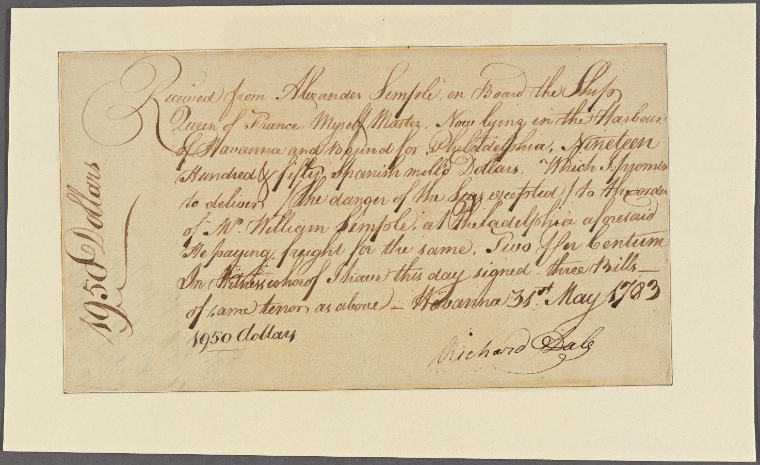 1950 Dollars
Received from Alexander Semple, on Board the Ship
Queen of France Myself Master, Now lying in the Harbour
of Havanna and Bound for Philadelphia, Nineteen
Hundred & fifty Spanish mill'd Dollars. Which I promise
to deliver (The danger of the Seas excepted) to the order
of Mr. William Semple, at Philadelphia aforesaid
He paying freight for the same, Two Per Centum
In Witness whereof I have this day signed three Bills
of same tenor as above - Havanna 31st May 1783
1950 dollars
Richard Dale